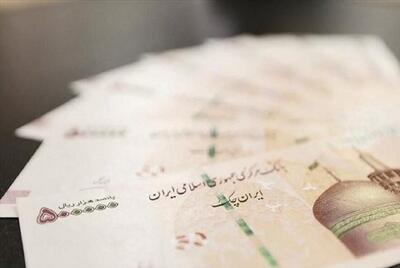 بانک مرکزی جمهوری اسلامی ایران
ایران چک
پانصد هزار ریال
۵۰۰۰۰۰